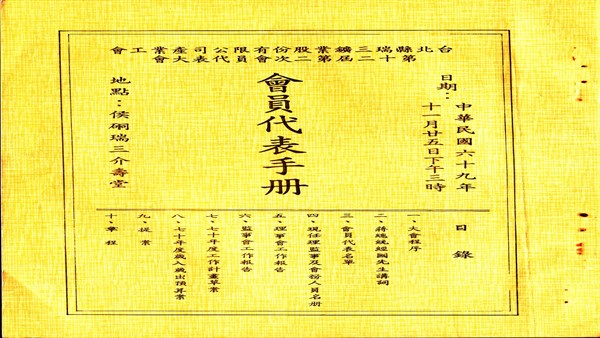 台北縣瑞三鑛業股份有限公司產業工會
第十二屆第二次會員代表大會
日期：
中華民國六十九年
十一月廿五日下午三時
會員代表手册
地點：侯硐瑞三介壽堂
目錄
一、大會程序
二、蔣總統經國先生講詞
三、會員代表名單
四、現任理監事及會務人員名册
五、理事會工作報告
六、監事會工作報告
七、七十年度工作計畫草案
八、七十年度歲入歲出預算案
九、提案
十、章程